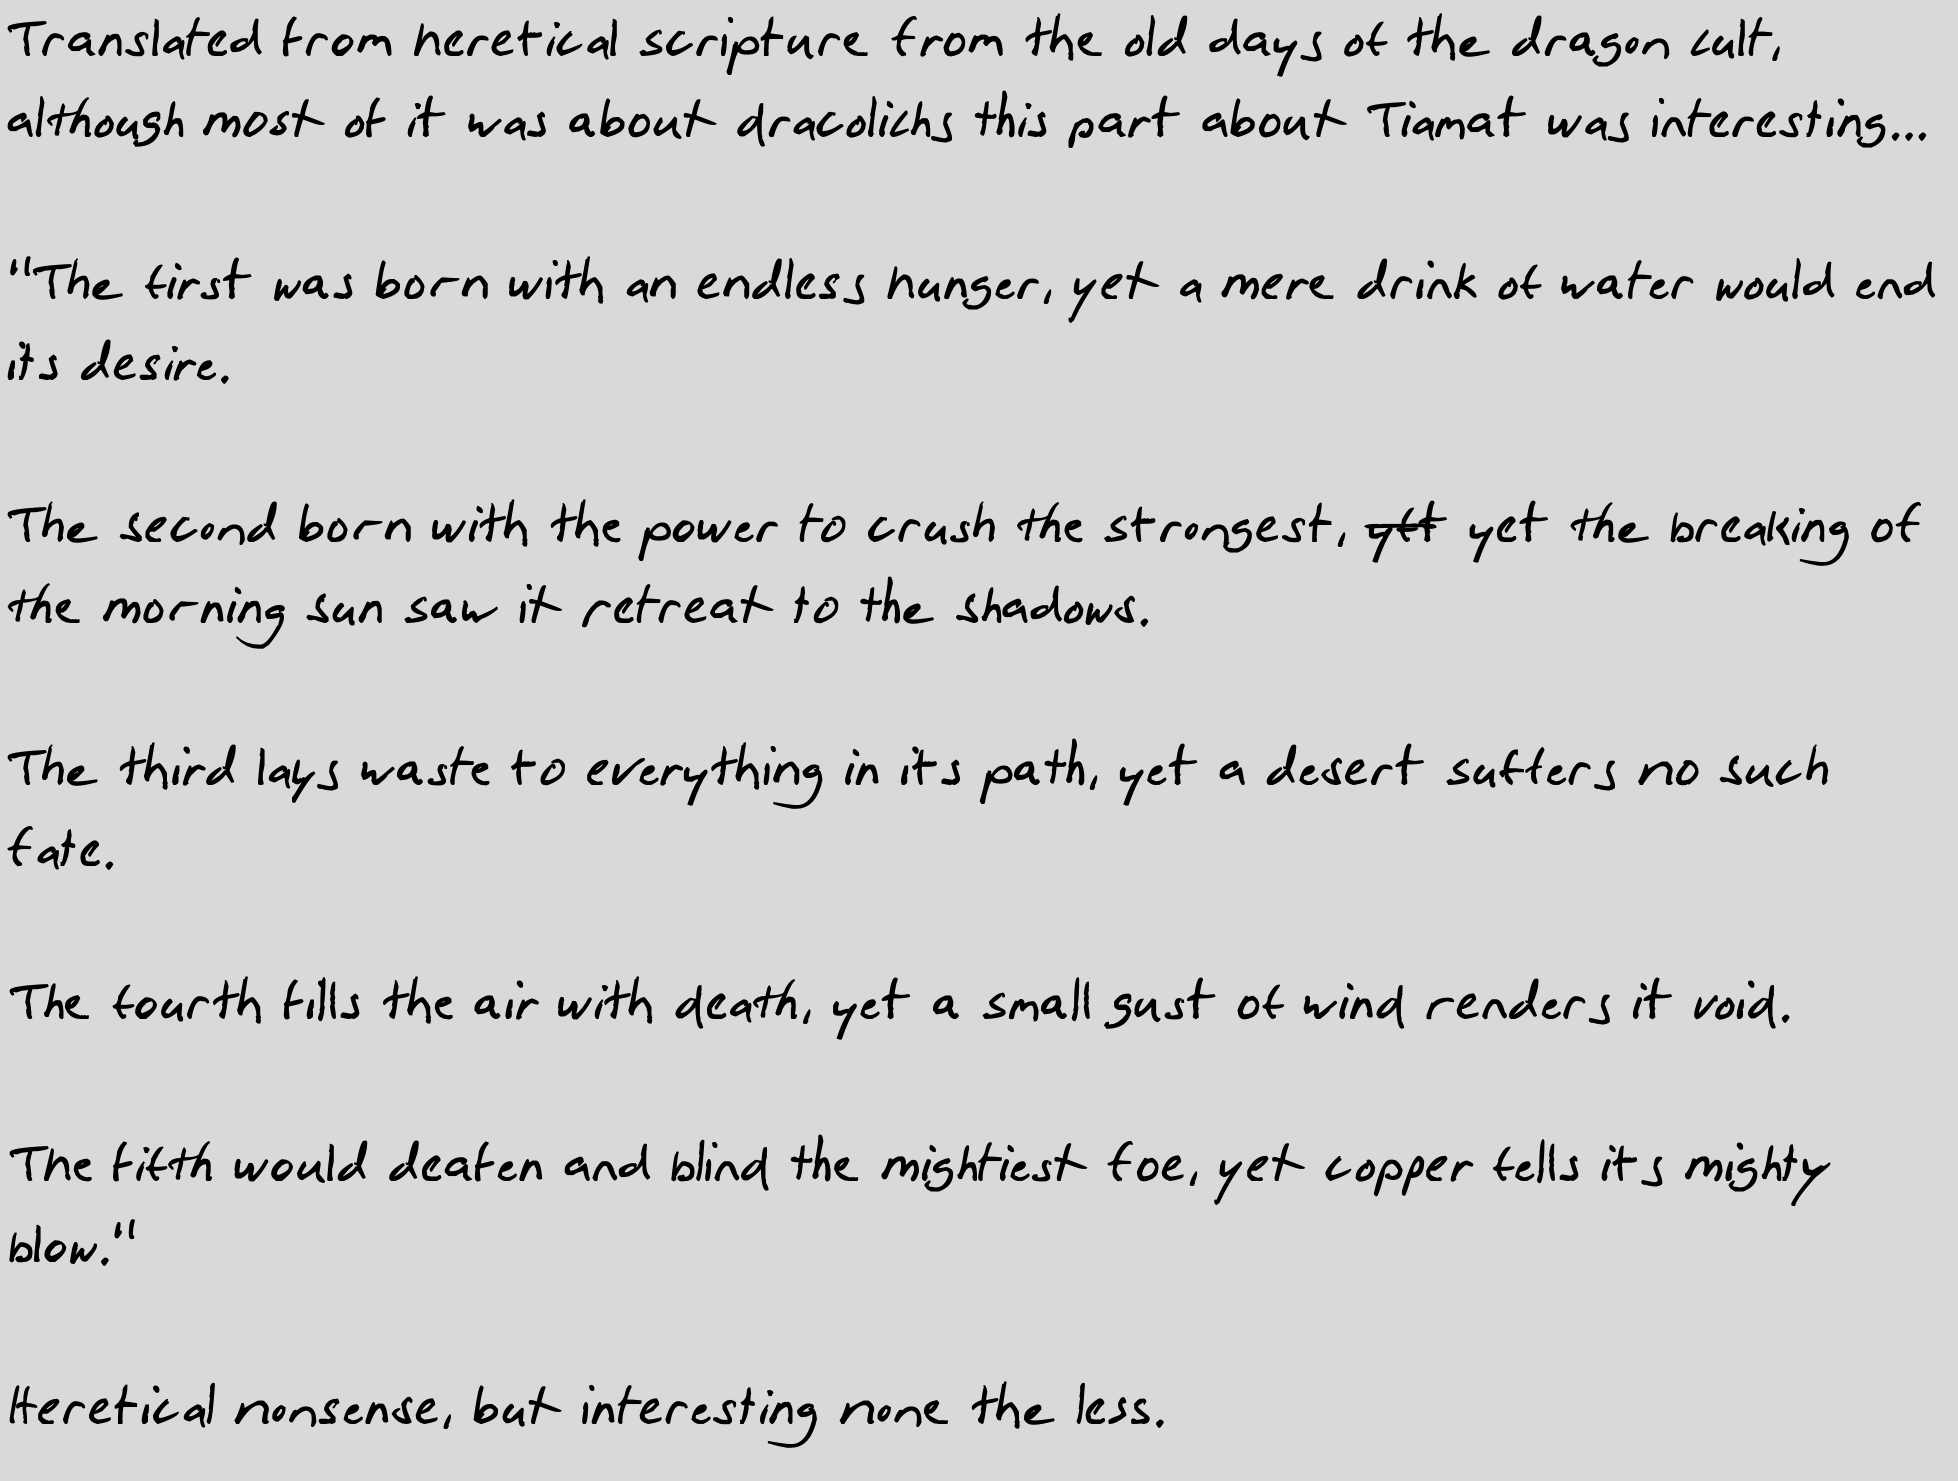 Translated from heretical scripture from the old days of the dragon cult,
although most of it was about dracolichs this part about Tiamat was interesting...
"The first was born with an endless hunger, yet a mere drink of water would end
its desire.
The second born with the power to crush the strongest, yft yet the breaking of
the morning sun saw it retreat to the shadows.
The third lays waste to everything in its path, yet a desert suffers no such
fate.
The fourth fills the air with death, yet a small gust of wind renders it void.
The fifth would deafen and blind the mightiest foe, yet copper fells its mighty
blow."
Heretical nonsense, but interesting none the less.